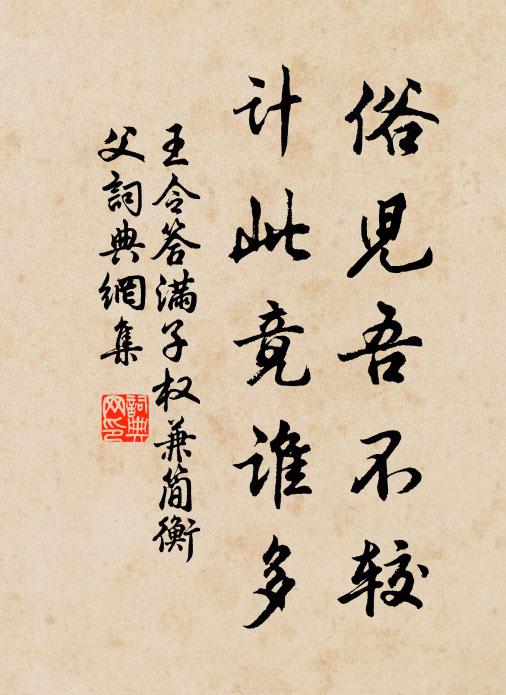 俗儿吾不较
计此竟谁多
王令答满子权兼简衡
父詞典網集
詞典
网印